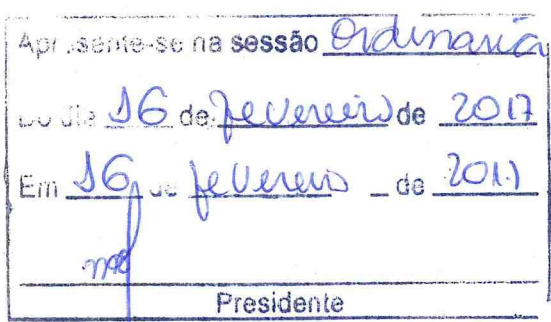 Apresente-se na sessão Ordinaria
Do dia 16 de fevereiro de 2017
Em 16 de fevereiro de 2017
Presidente